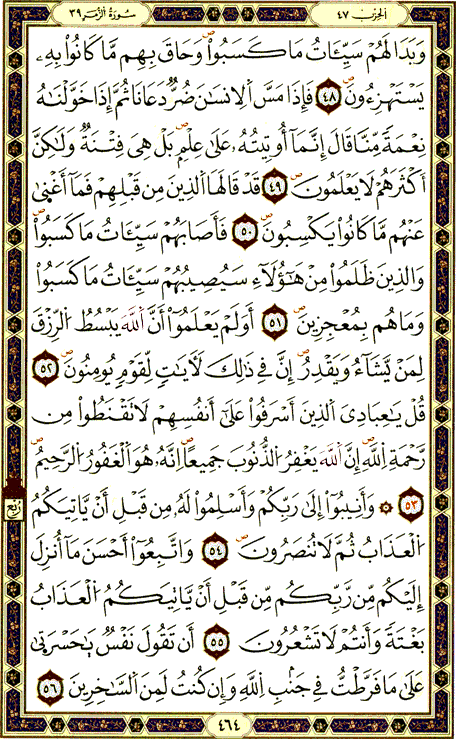 سُورَةُ الزُّمَر ٣٩ الحِزْب ٤٧
وَبَدَا لَهُمْ سَيِّـَٔاتُ مَا كَسَبُواْ وَحَاقَ بِهِم مَّا كَانُواْ بِهِۦ
يَسْتَهْزِءُونَ ٤٨ فَإِذَا مَسَّ اَلِانسَٰنَ ضُرٌّ دَعَانَا ثُمَّ إِذَا خَوَّلْنَٰهُ
نِعْمَةً مِّنَّا قَالَ إِنَّمَا أُوتِيتُهُۥ عَلَىٰ عِلْمٍ بَلْ هِىَ فِتْنَةٌ وَلَٰكِنَّ
أَكْثَرَهُمْ لَا يَعْلَمُونَ ٤٩ قَدْ قَالَهَا اَلذِينَ مِن قَبْلِهِمْ فَمَا أَغْنَىٰ
عَنْهُم مَّا كَانُواْ يَكْسِبُونَ ٥٠ فَأَصَابَهُمْ سَيِّـَٔاتُ مَا كَسَبُواْ
وَالذِينَ ظَلَمُواْ مِنْ هَٰؤُلَآءِ سَيُصِيبُهُمْ سَيِّـَٔاتُ مَا كَسَبُواْ
وَمَا هُم بِمُعْجِزِينَ ٥١ أَوَلَمْ يَعْلَمُواْ أَنَّ اَللَّهَ يَبْسُطُ اُلرِّزْقَ
لِمَنْ يَّشَآءُ وَيَقْدِرُ إِنَّ فِى ذَٰلِكَ لَأٓيَٰتٍ لِّقَوْمٍ يُومِنُونَ ٥٢
قُلْ يَٰعِبَادِىَ اَلذِينَ أَسْرَفُواْ عَلَىٰ أَنفُسِهِمْ لَا تَقْنَطُواْ مِن
رَّحْمَةِ اِللَّهِ إِنَّ اَللَّهَ يَغْفِرُ اُلذُّنُوبَ جَمِيعاً إِنَّهُۥ هُوَ اَلْغَفُورُ اُلرَّحِيمُ
٥٣ ۞ وَأَنِيبُواْ إِلَىٰ رَبِّكُمْ وَأَسْلِمُواْ لَهُۥ مِن قَبْلِ أَنْ يَّاتِيَكُمُ
رُبْع
اُلْعَذَابُ ثُمَّ لَا تُنصَرُونَ ٥٤ وَاتَّبِعُواْ أَحْسَنَ مَا أُنزِلَ
إِلَيْكُم مِّن رَّبِّكُم مِّن قَبْلِ أَنْ يَّاتِيَكُمُ اُلْعَذَابُ
بَغْتَةً وَأَنتُمْ لَا تَشْعُرُونَ ٥٥ أَن تَقُولَ نَفْسٌ يَٰحَسْرَتَىٰ
عَلَىٰ مَا فَرَّطتُّ فِى جَنۢبِ اِللَّهِ وَإِن كُنتُ لَمِنَ اَلسَّٰخِرِينَ ٥٦
٤٦٤